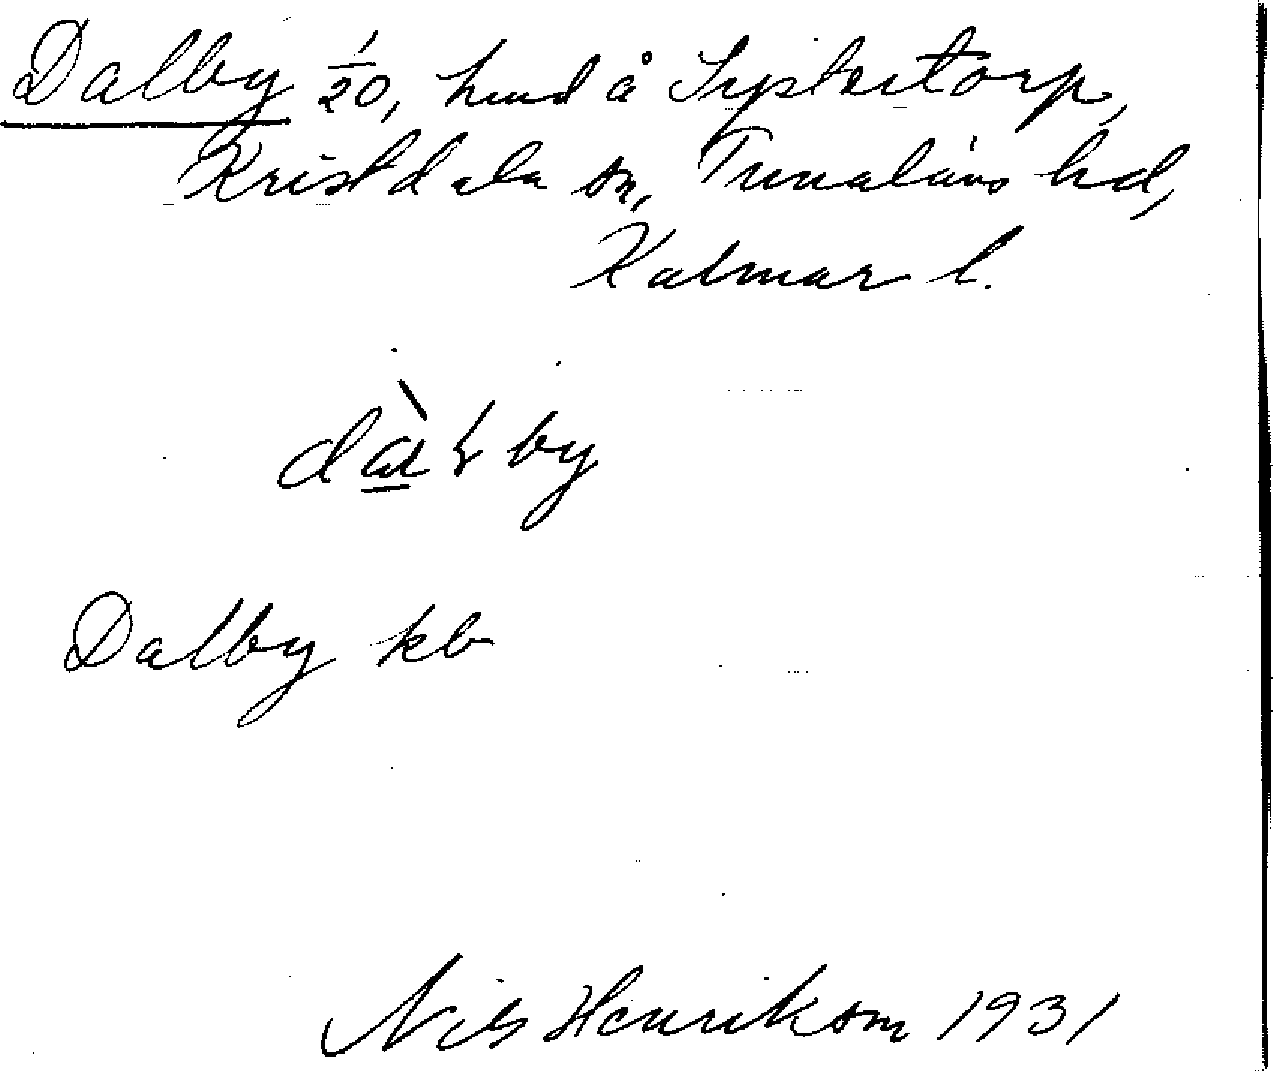 Dalby 1/20, hmd å Systertorp,
Kristdala sn, Tunaläns hd,
Kalmar l.
Dalby kb
Nils Henrikson 1931